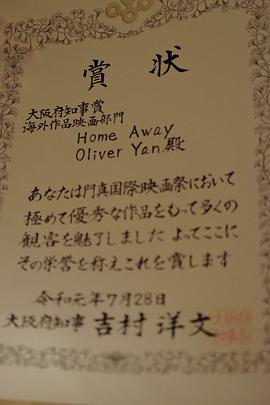 賞状
大阪府知事賞
海外作品映画部門
Home Away
Oliver Yan殿
あなたは門真国際映画祭において
極めて優秀な作品をもって多くの
観客を魅了しました よってここに
その栄誉を称えこれを賞します
令和元年7月28日
大阪府知事 吉村洋文